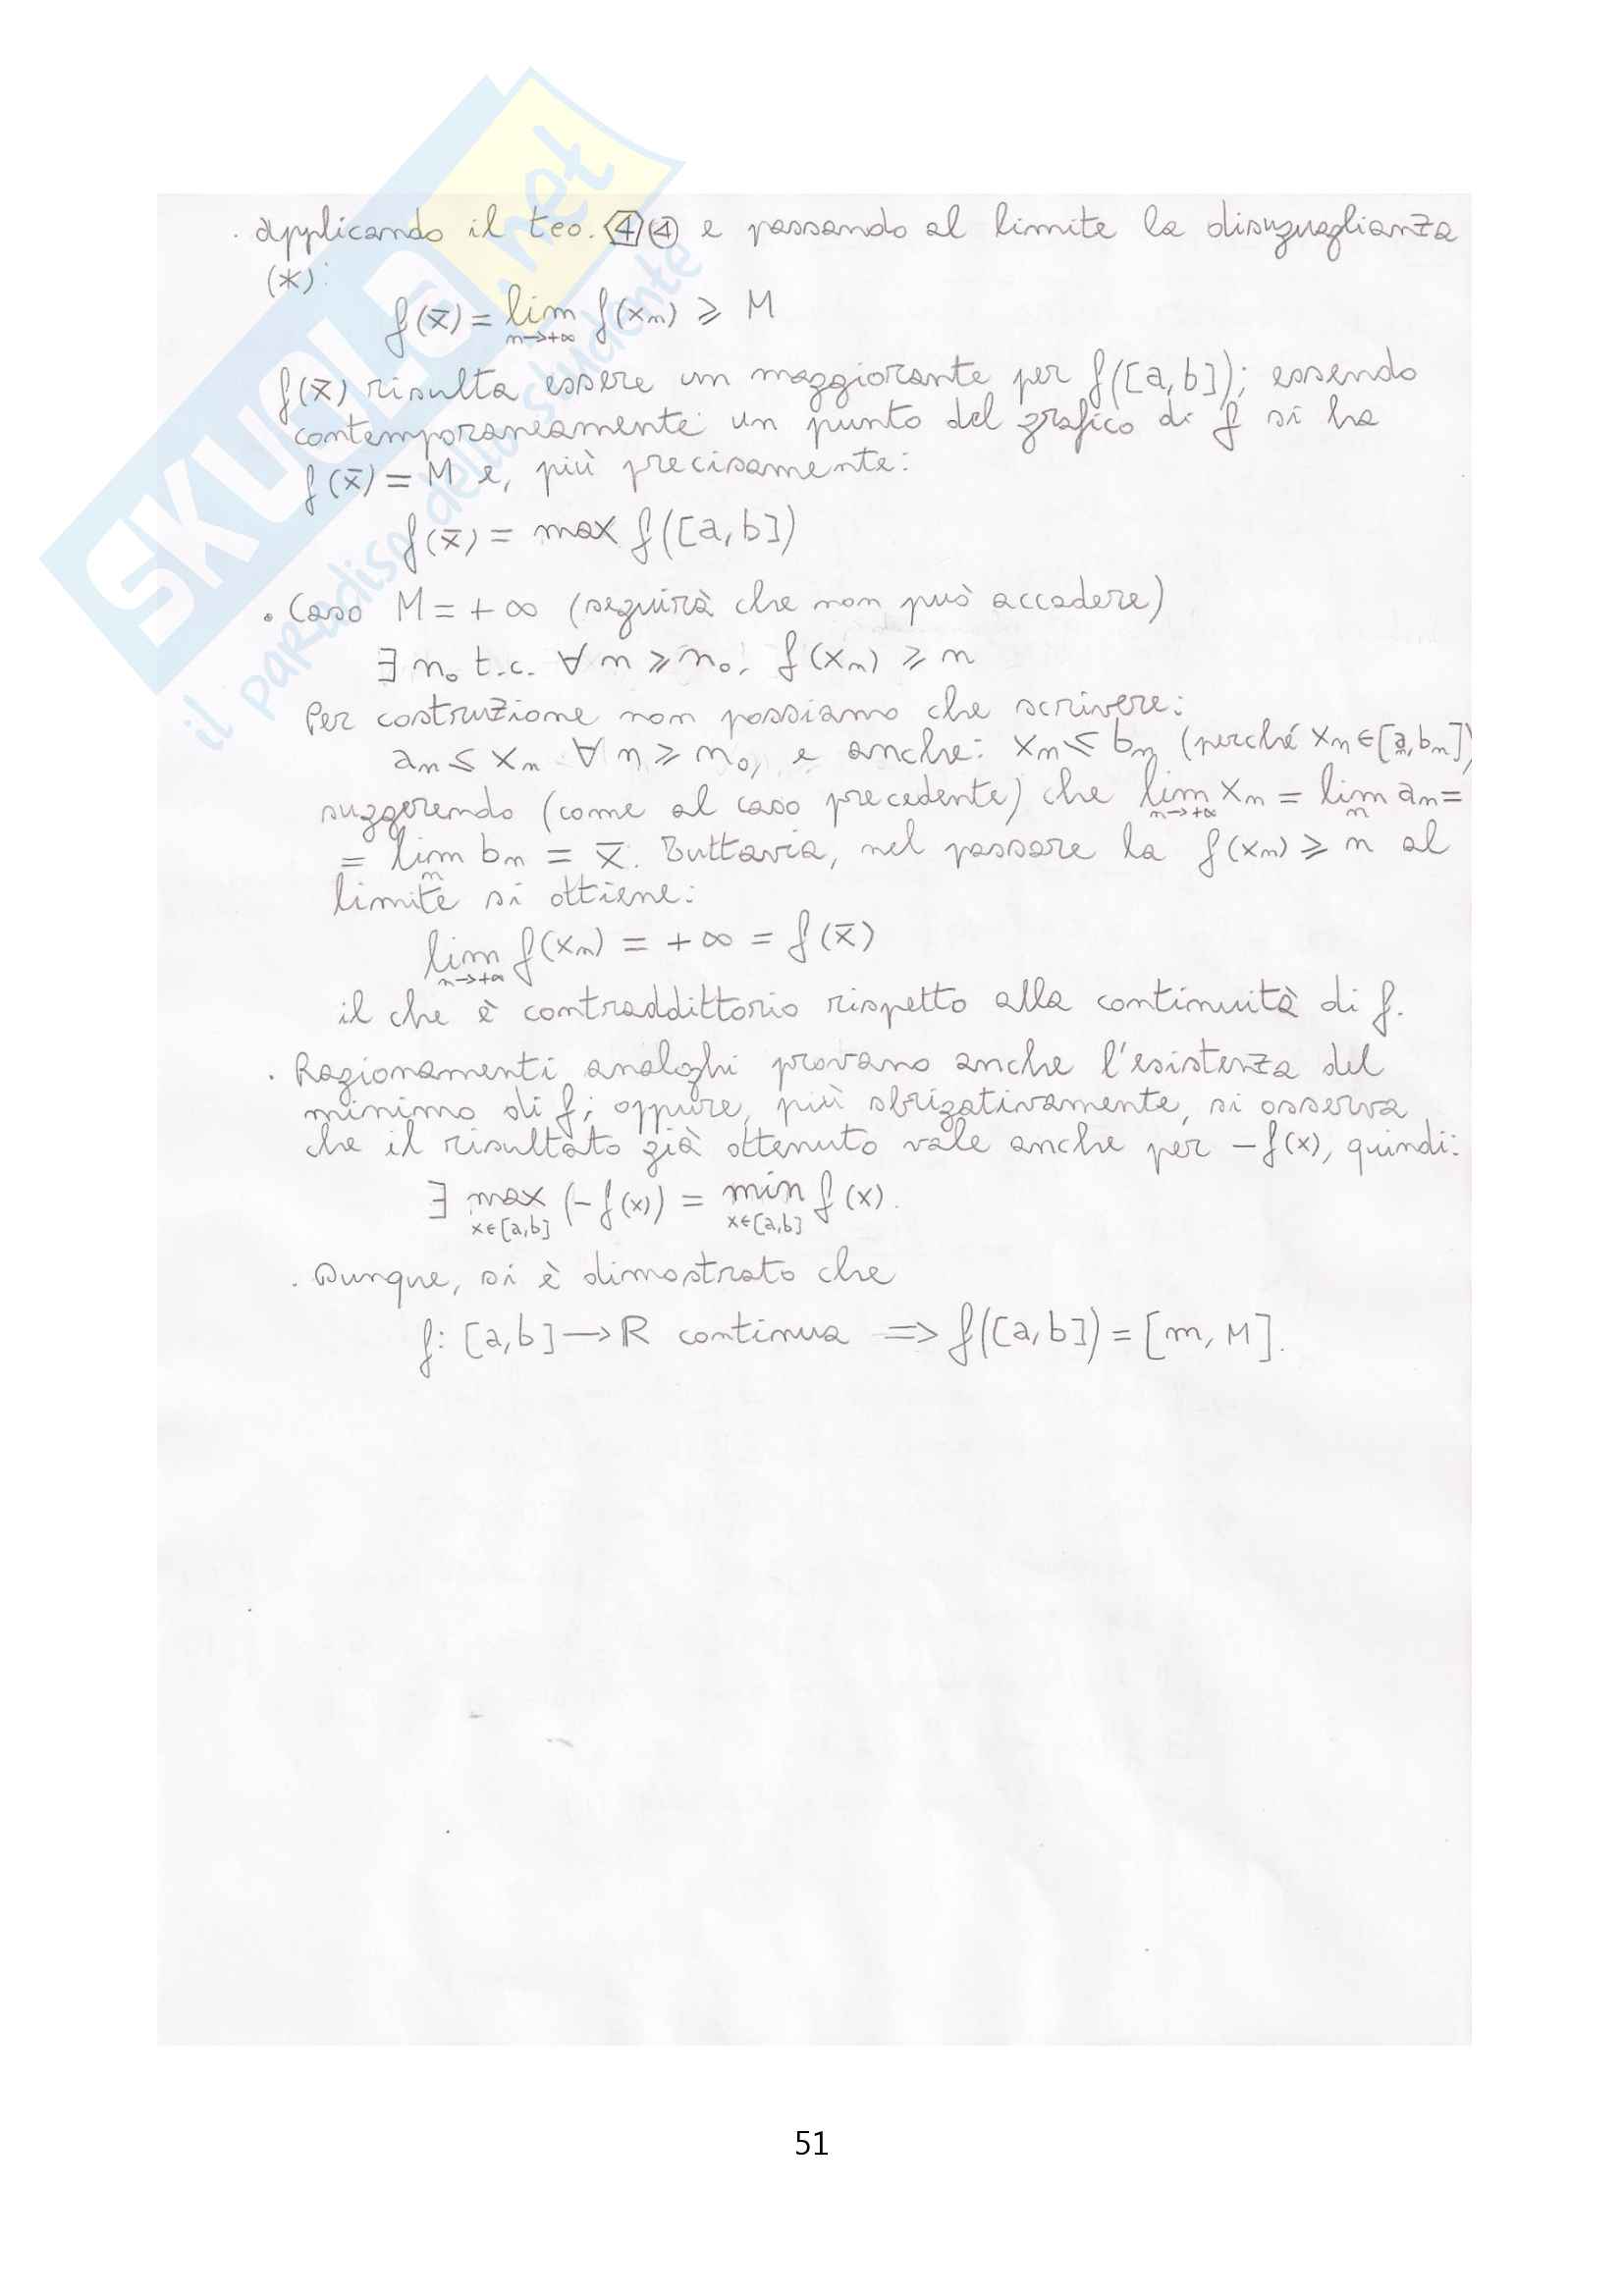 SKUOLA.net
il paradiso dello studente
· applicando il teo. 4 (4) e passando al limite la disuguaglianza
(*):
f(x̄) = lim f(xₙ) ⩾ M
n→+∞
f(x̄) risulta essere un maggiorante per f([a,b]); essendo
contemporaneamente un punto del grafico di f si ha
f(x̄) = M e, più precisamente:
f(x̄) = max f([a,b])
• Caso M = +∞ (seguirà che non può accadere)
∃ n₀ t.c. ∀ n ⩾ n₀: f(xₙ) ⩾ n
Per costruzione non possiamo che scrivere:
aₙ ⩽ xₙ ∀ n ⩾ n₀, e anche: xₙ ⩽ bₙ (perché xₙ ∈ [aₙ,bₙ])
suggerendo (come al caso precedente) che lim xₙ = lim aₙ =
n→+∞ n
= lim bₙ = x̄. Tuttavia, nel passare la f(xₙ) ⩾ n al
n
limite si ottiene:
lim f(xₙ) = +∞ = f(x̄)
n→+∞
il che è contraddittorio rispetto alla continuità di f.
· Ragionamenti analoghi provano anche l'esistenza del
minimo di f; oppure, più sbrigativamente, si osserva
che il risultato già ottenuto vale anche per −f(x), quindi:
∃ max (−f(x)) = min f(x).
x∈[a,b] x∈[a,b]
· Dunque, si è dimostrato che
f: [a,b] → R continua ⇒ f([a,b]) = [m, M].
51